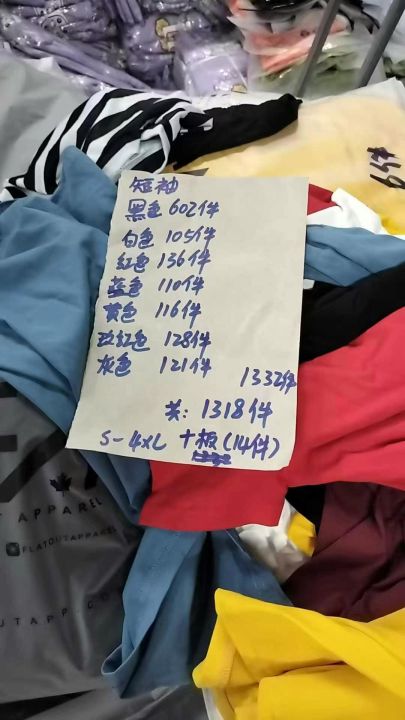 短袖
黑色 602件
白色 105件
红色 136件
蓝色 110件
黄色 116件
玫红色 128件
灰色 121件
1332件
共: 1318件
S-4XL 十板(14件)
APPAREL
FLATOUTAPPAREL
UTAPP.CO